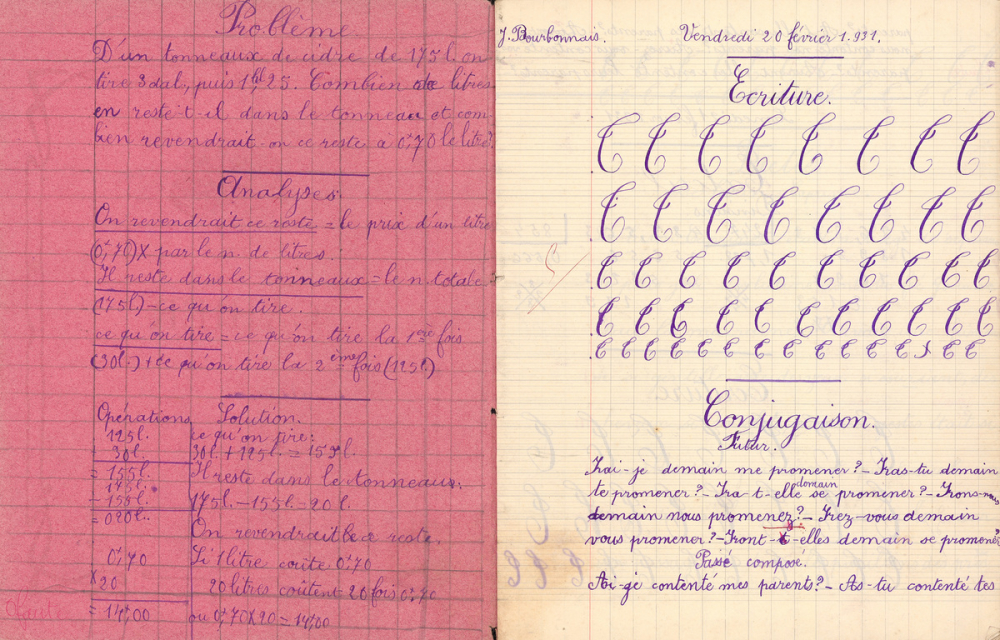 Problème
D'un tonneaux de cidre de 175 l. on
tire 3 dal, puis 1 hl 25. Combien de litres
en reste t-il dans le tonneau et com
bien revendrait-on ce reste à 0f,70 le litre?
Analyses.
On revendrait ce reste = le prix d'un litre
(0f,70) X par le n. de litres.
Il reste dans le tonneaux = le n totale
(175l) - ce qu'on tire.
ce qu'on tire = ce qu'on tire la 1ère fois
(30l.) + ce qu'on tire la 2ème fois (125l.)
Opérations
125l.
30l.
= 155l.
175l.
- 155l.
= 020l.
0f,70
X 20
= 14f,00
Solution.
ce qu'on tire:
30l. + 125l. = 155l.
Il reste dans le tonneaux.
175l. - 155l. = 20l.
On revendrait ce reste.
Si 1 litre coûte 0f,70
20 litres coûtent 20 fois 0f,70
ou 0f,70 X 20 = 14f,00
J. Bourbonnais.
Vendredi 20 février 1.931.
Ecriture.
C C C C C C C C
C C C C C C C C
C C C C C C C C C
C C C C C C C C C
C C C C C C C C C C C C C C C
Conjugaison.
Futur.
Irai-je demain me promener? - Iras-tu demain
te promener? - Ira-t-elle demain se promener? - Irons-nous
demain nous promener? - Irez-vous demain
vous promener? - Iront-elles demain se promener?
Passé composé.
Ai-je contenté mes parents? - As-tu contenté tes